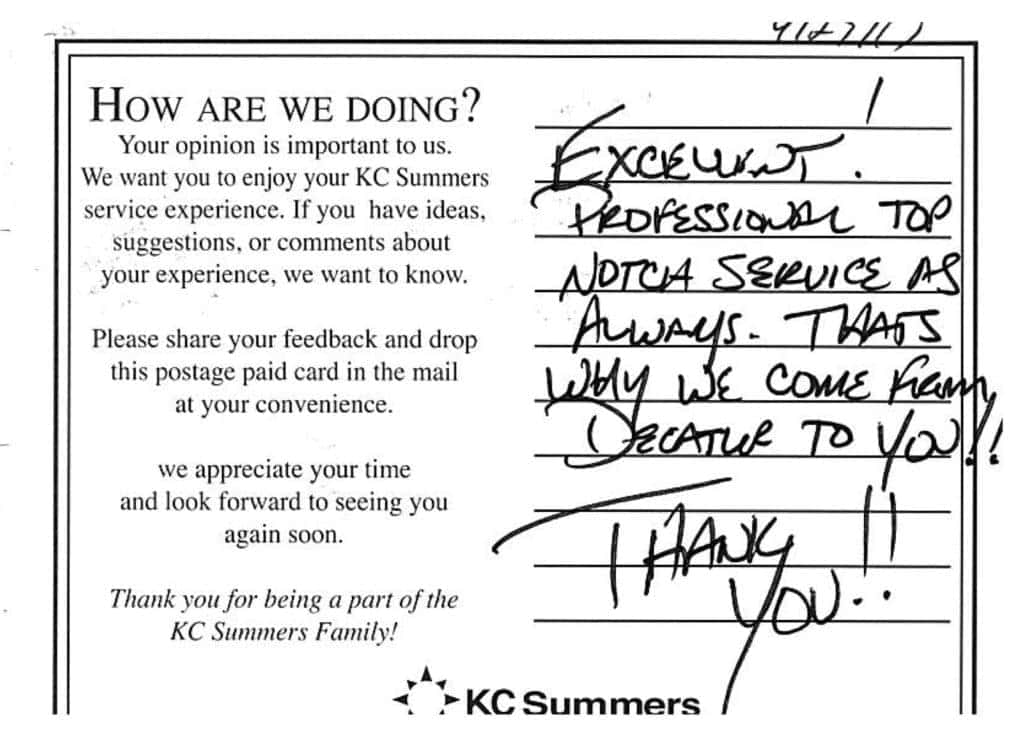 HOW ARE WE DOING?
Your opinion is important to us.
We want you to enjoy your KC Summers
service experience. If you have ideas,
suggestions, or comments about
your experience, we want to know.
Please share your feedback and drop
this postage paid card in the mail
at your convenience.
we appreciate your time
and look forward to seeing you
again soon.
Thank you for being a part of the
KC Summers Family!
KC Summers
EXCELLENT!
PROFESSIONAL TOP
NOTCH SERVICE AS
ALWAYS. THATS
WHY WE COME FROM
DECATUR TO YOU!!
THANK
YOU!!